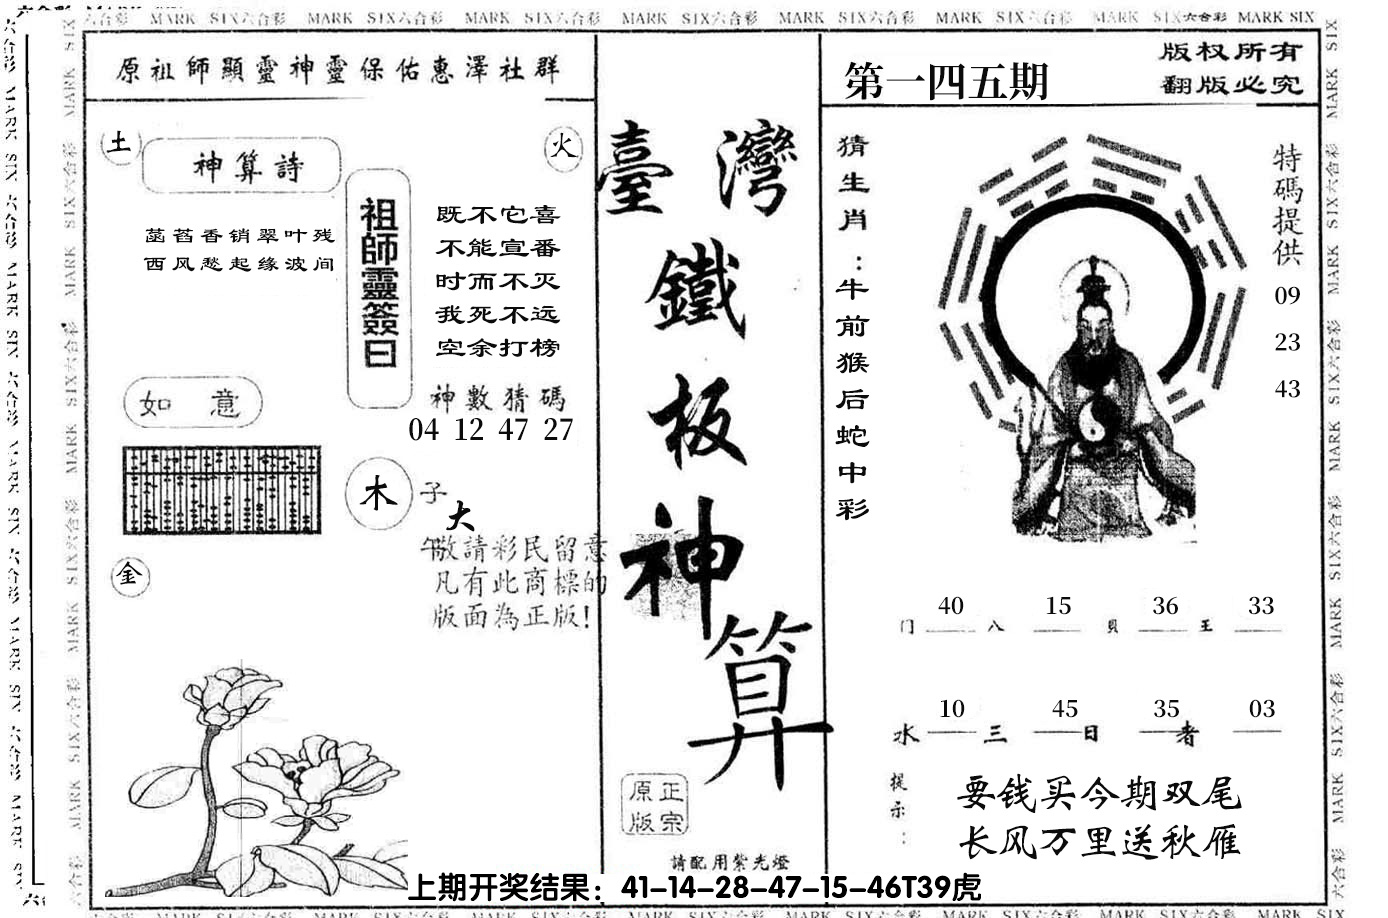 MARK SIX六合彩 MARK SIX六合彩 MARK SIX六合彩 MARK SIX六合彩 MARK SIX六合彩 MARK SIX六合彩 MARK SIX六合彩 MARK SIX
原祖師顯靈神靈保佑惠澤社群
土
神算詩
火
菡萏香销翠叶残
西风愁起缘波间
祖師靈簽曰
既不它喜
不能宣番
时而不灭
我死不远
空余打榜
如意
神數猜碼
04 12 47 27
木
子
大
午
敬請彩民留意
凡有此商標的
版面為正版!
金
臺灣
鐵
板
神
算
正宗
原版
請配用紫光燈
第一四五期
版权所有
翻版必究
猜生肖:牛前猴后蛇中彩
特碼提供
09
23
43
40 15 36 33
门 八 貝 王
10 45 35 03
水 三 日 者
提示:
要钱买今期双尾
长风万里送秋雁
上期开奖结果：41-14-28-47-15-46T39虎